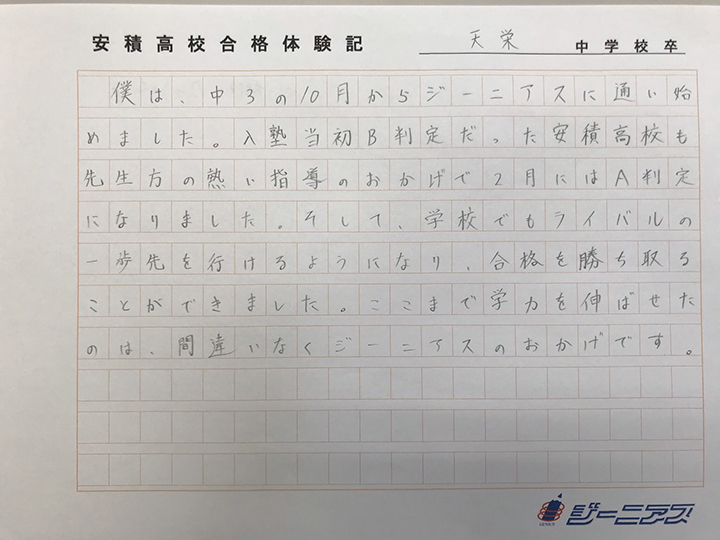 安積高校合格体験記 天栄 中学校卒
僕は、中3の10月からジーニアスに通い始
めました。入塾当初B判定だった安積高校も
先生方の熱い指導のおかげで2月にはA判定
になりました。そして、学校でもライバルの
一歩先を行けるようになり、合格を勝ち取る
ことができました。ここまで学力を伸ばせた
のは、間違いなくジーニアスのおかげです。
GENIUS ジーニアス